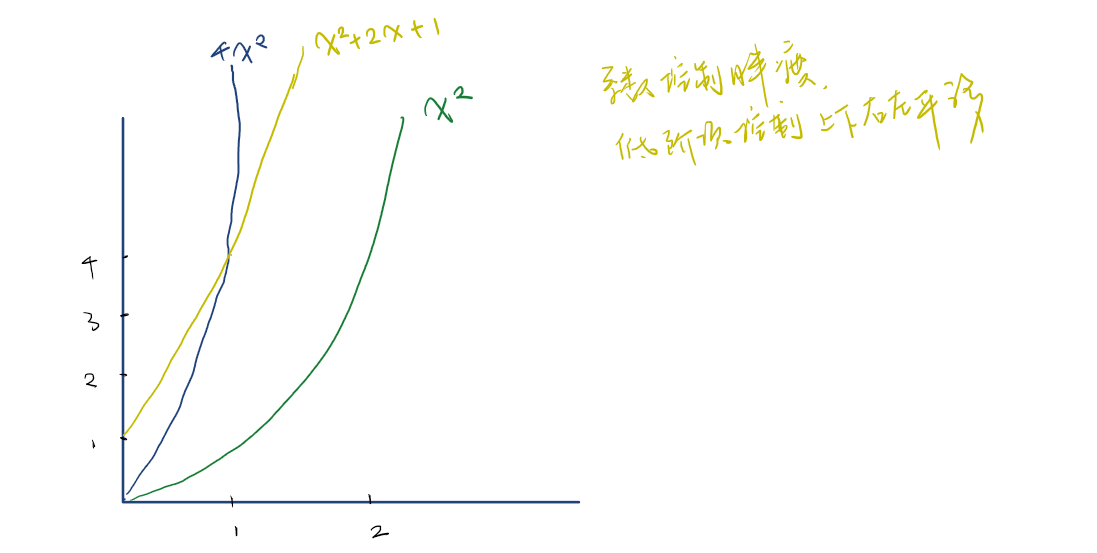 4x² x²+2x+1
x²
系数控制胖瘦.
低阶项控制上下右左平移
4
3
2
1
1 2